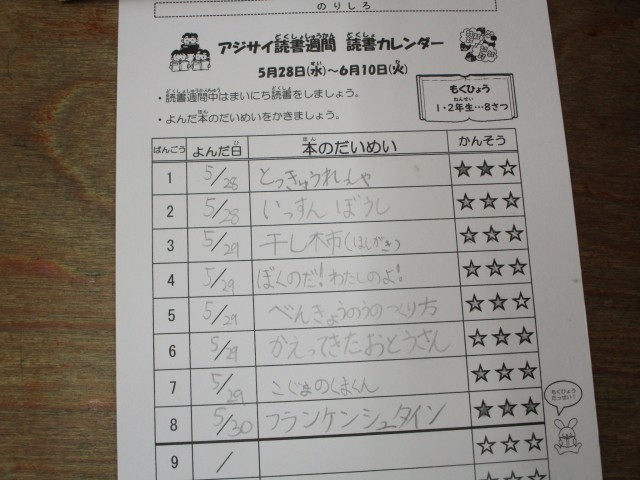 のりしろ
アジサイ読書週間 読書カレンダー
5月28日(水)～6月10日(火)
・読書週間中はまいにち読書をしましょう。
・よんだ本のだいめいをかきましょう。
もくひょう
1・2年生…8さつ
ばんごう よんだ日 本のだいめい かんそう
1 5/28 とっきゅうれっしゃ ★★☆
2 5/28 いっすんぼうし ★★★
3 5/29 干し柿(ほしがき) ★★★
4 5/29 ぼくのだ!わたしのよ! ★★★
5 5/29 べんきょうのうのつくり方 ★★☆
6 5/29 かえってきたおとうさん ★★★
7 5/29 こぐまのくまくん ★★★
8 5/30 フランケンシュタイン ★★★
もくひょう
たっせい!
9 / ☆☆☆